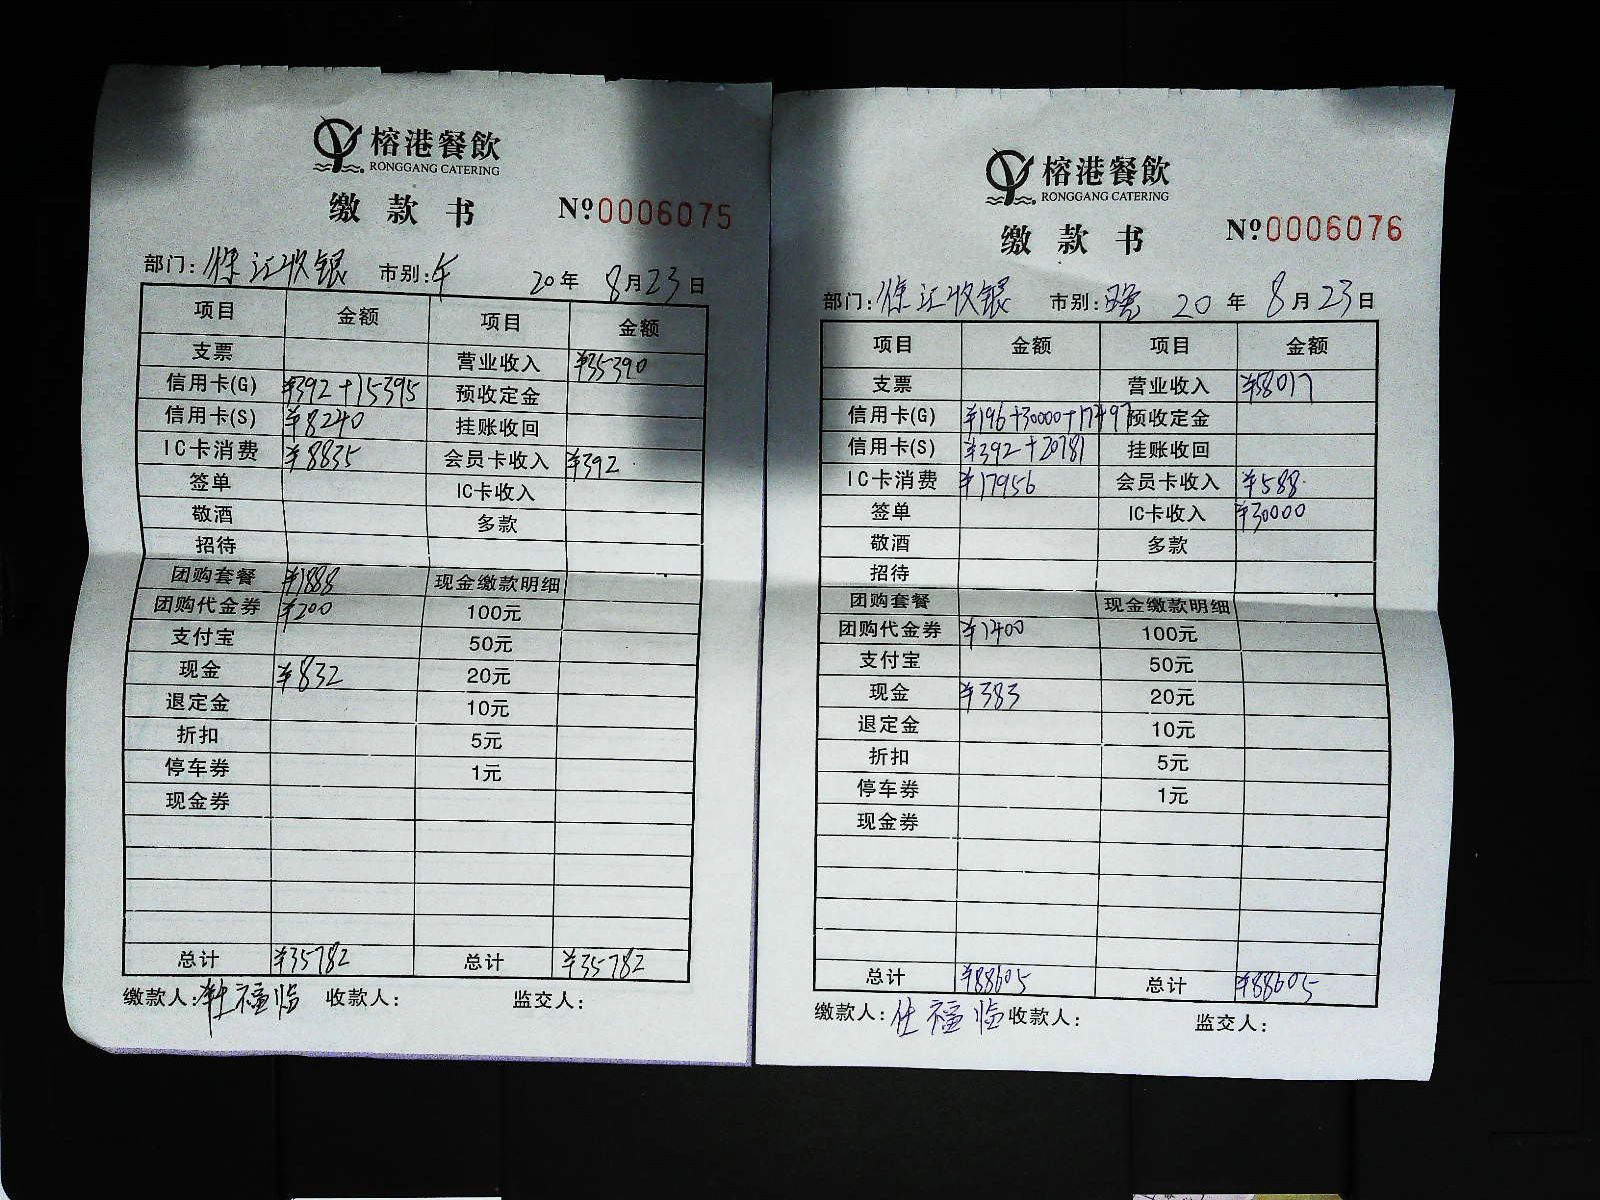 榕港餐飲
RONGGANG CATERING
缴款书 Nº0006075
部门:徐汇收银 市别:午 20年 8月23日
项目 金额 项目 金额
支票 营业收入 ¥35390
信用卡(G) ¥392+15395 预收定金
信用卡(S) ¥8240 挂账收回
IC卡消费 ¥8835 会员卡收入 ¥392
签单 IC卡收入
敬酒 多款
招待
团购套餐 ¥1888 现金缴款明细
团购代金券 ¥200 100元
支付宝 50元
现金 ¥832 20元
退定金 10元
折扣 5元
停车券 1元
现金券
总计 ¥35782 总计 ¥35782
缴款人:杜福临 收款人: 监交人:
榕港餐飲
RONGGANG CATERING
缴款书 Nº0006076
部门:徐汇收银 市别:晚 20年 8月23日
项目 金额 项目 金额
支票 营业收入 ¥58017
信用卡(G) ¥196+30000+17497 预收定金
信用卡(S) ¥392+20781 挂账收回
IC卡消费 ¥17956 会员卡收入 ¥588
签单 IC卡收入 ¥30000
敬酒 多款
招待
团购套餐 现金缴款明细
团购代金券 ¥1400 100元
支付宝 50元
现金 ¥383 20元
退定金 10元
折扣 5元
停车券 1元
现金券
总计 ¥88605 总计 ¥88605
缴款人:仕福临 收款人: 监交人: